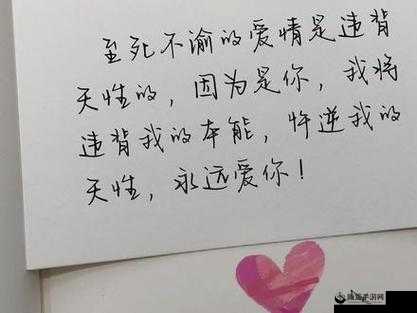 至死不渝的爱情是违背
天性的，因为是你，我将
违背我的本能，忤逆我的
天性，永远爱你！